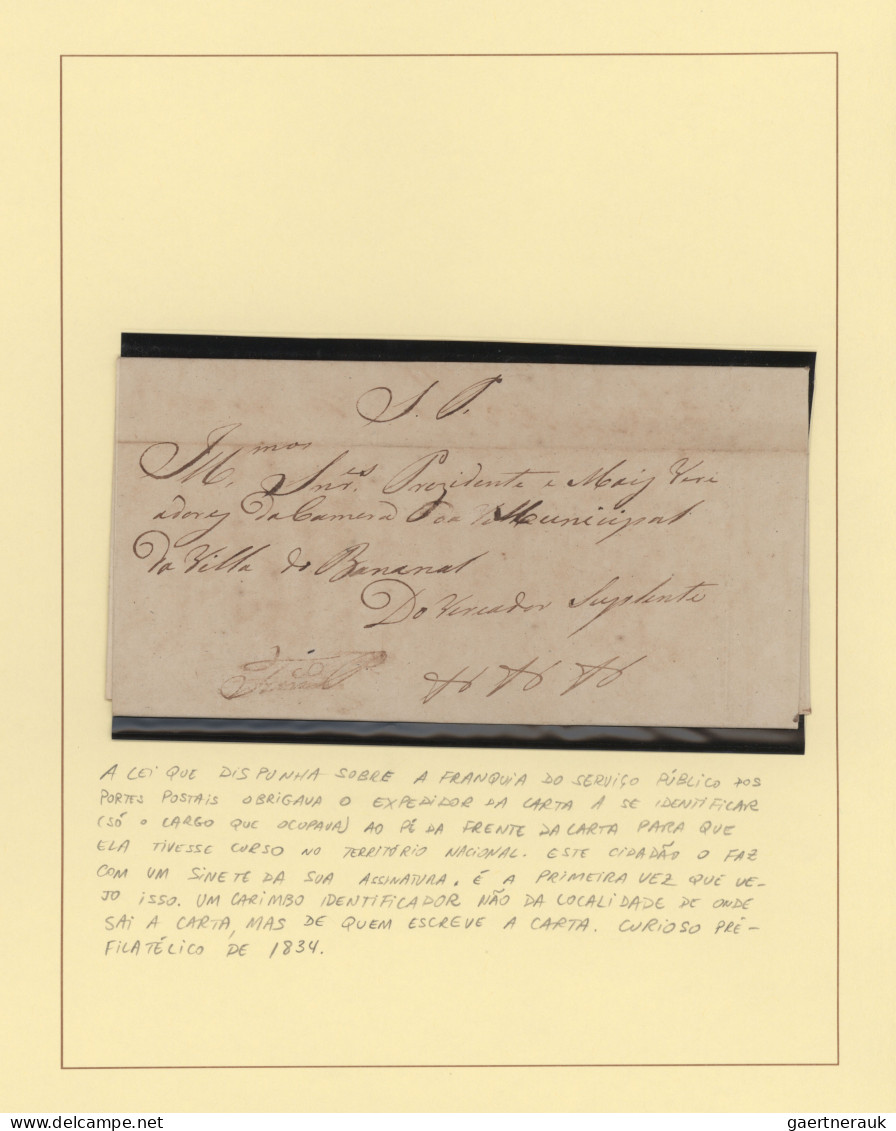 S. P.
Ill.mos Snr.s Prezidente e Maiz Veri
adorez da Camera Municipal
da Villa do Bananal
Do Vereador Suplente
A LEI QUE DISPUNHA SOBRE A FRANQUIA DO SERVIÇO PÚBLICO DOS
PORTES POSTAIS OBRIGAVA O EXPEDIDOR DA CARTA A SE IDENTIFICAR
(SÓ O CARGO QUE OCUPAVA) AO PÉ DA FRENTE DA CARTA PARA QUE
ELA TIVESSE CURSO NO TERRITÓRIO NACIONAL. ESTE CIDADÃO O FAZ
COM UM SINETE DA SUA ASSINATURA. É A PRIMEIRA VEZ QUE VE-
JO ISSO. UM CARIMBO IDENTIFICADOR NÃO DA LOCALIDADE DE ONDE
SAI A CARTA, MAS DE QUEM ESCREVE A CARTA. CURIOSO PRÉ-
FILATÉLICO DE 1834.
gaertnerauk